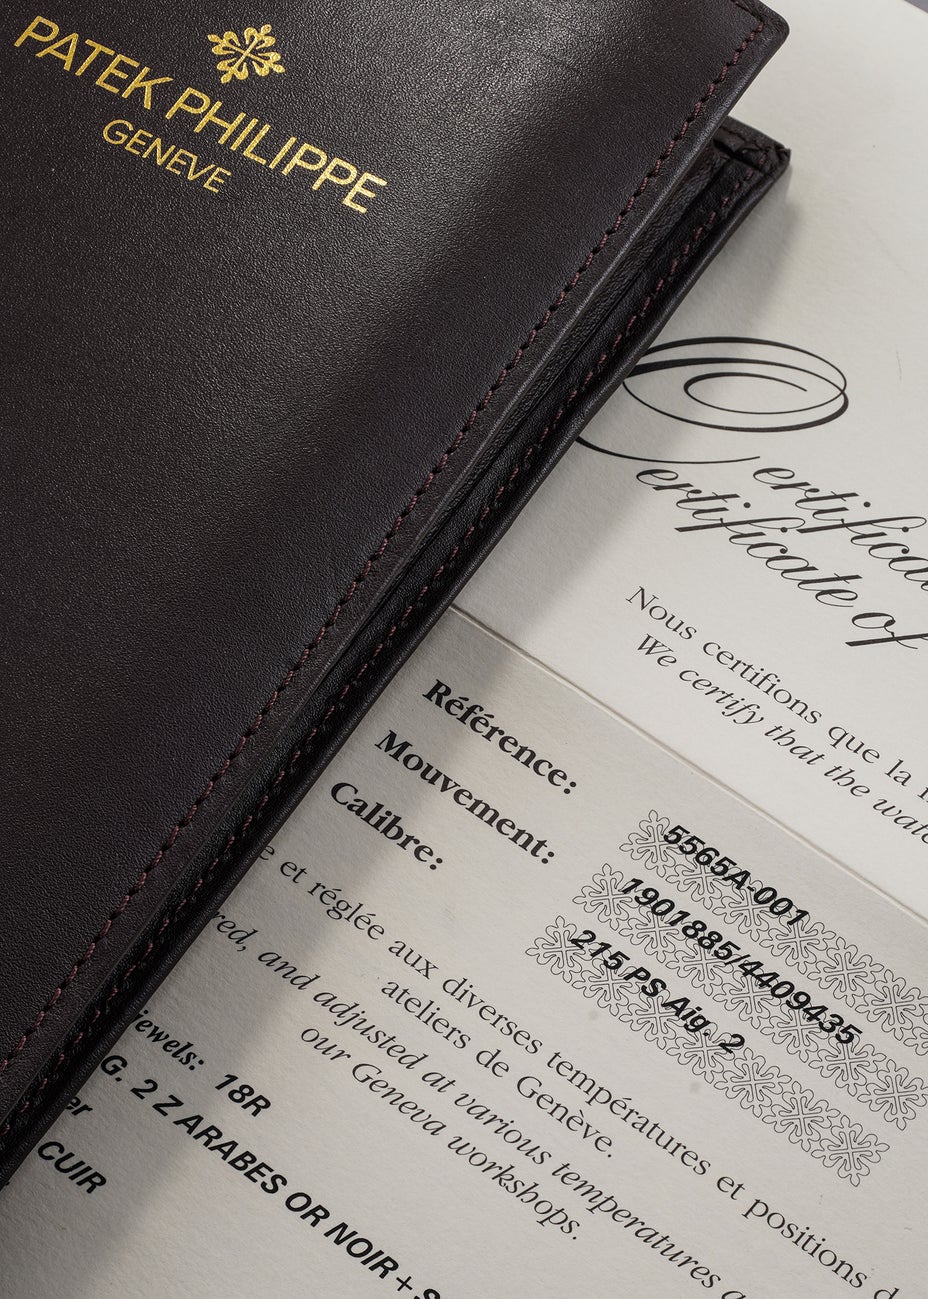 PATEK PHILIPPE
GENEVE
Certifica
Certificate of
Nous certifions que la
We certify that the
Référence: 5565A-001
Mouvement: 1901885/4409435
Calibre: 215 PS Aig. 2
e et réglée aux diverses températures et positions d
ateliers de Genève.
red, and adjusted at various temperatures
our Geneva workshops.
jewels: 18R
G. 2 Z ARABES OR NOIR + S
er
CUIR